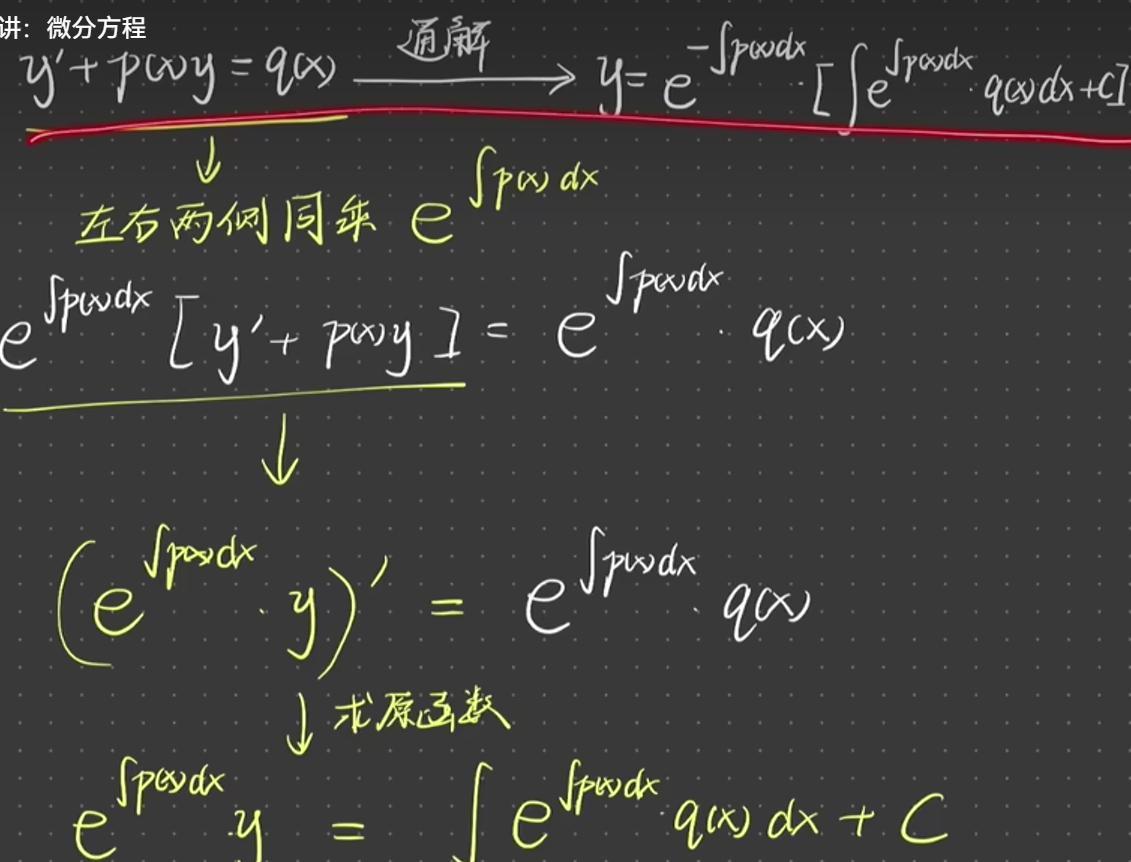 讲：微分方程
y′ + p(x)y = q(x) 通解 → y = e^{-∫p(x)dx} · [∫e^{∫p(x)dx} · q(x)dx + C]
↓
左右两侧同乘 e^{∫p(x)dx}
e^{∫p(x)dx} [y′ + p(x)y] = e^{∫p(x)dx} · q(x)
↓
(e^{∫p(x)dx} · y)′ = e^{∫p(x)dx} · q(x)
↓ 求原函数
e^{∫p(x)dx} · y = ∫ e^{∫p(x)dx} · q(x) dx + C